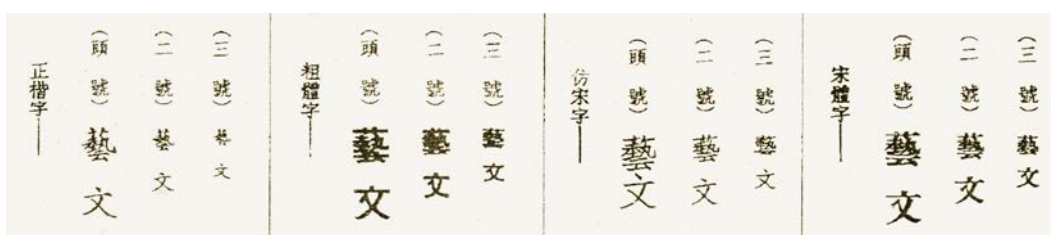 正楷字——
(頭號)藝文
(二號)藝文
(三號)藝文
粗體字——
(頭號)藝文
(二號)藝文
(三號)藝文
仿宋字——
(頭號)藝文
(二號)藝文
(三號)藝文
宋體字——
(頭號)藝文
(二號)藝文
(三號)藝文